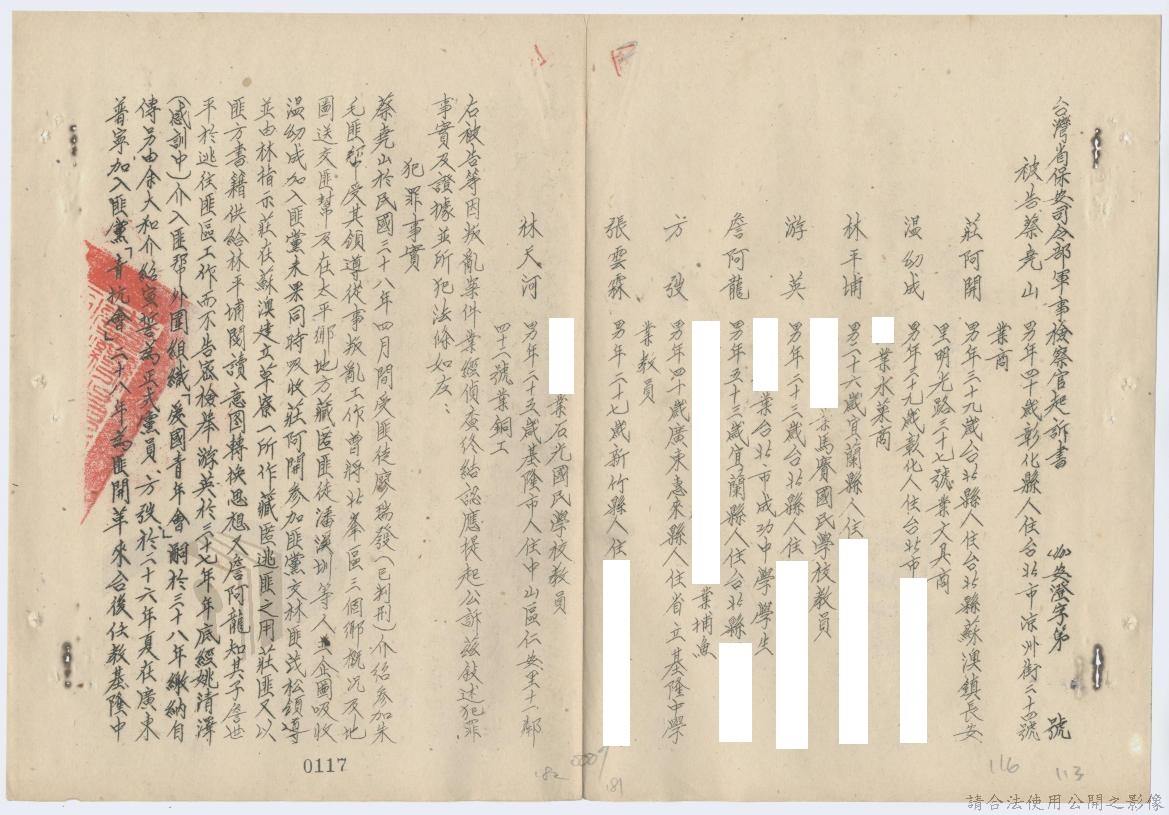 台灣省保安司令部軍事檢察官起訴書 安澄字第 號
被告蔡堯山 男年四十歲彰化縣人住台北市涼州街三十四號
業商
莊阿開 男年三十九歲台北縣人住台北縣蘇澳鎮長安
里明光路三十七號業文具商
溫幼成 男年三十九歲彰化人住台北市
業水菓商
林平埔 男二十六歲宜蘭縣人住
業馬賽國民學校教員
游 英 男年二十三歲台北縣人住
業台北市成功中學學生
詹阿龍 男年五十三歲宜蘭縣人住台北縣
業捕魚
方 弢 男年四十歲廣東惠來縣人住省立基隆中學
業教員
張雲霖 男年二十七歲新竹縣人住
業石光國民學校教員
林天河 男年二十五歲基隆市人住中山區仁安里十一鄰
四十六號業銅工
右被告等因叛亂案件業經偵查終結認應提起公訴茲敍述犯罪
事實及證據並所犯法條如左：
犯罪事實
蔡堯山於民國三十八年四月間受匪徒廖瑞發（已判刑）介紹參加朱
毛匪幫受其領導從事叛亂工作曾將北峯區三個鄉概況及地
圖送交匪幫及在太平鄉地方藏匿匪徒潘溪圳等人並企圖吸收
溫幼成加入匪黨未果同時吸收莊阿開參加匪黨交林匪茂松領導
並由林指示莊在蘇澳建立草寮一所作藏匿逃匪之用莊匪又以
匪方書籍供給林平埔閱讀意圖轉換思想人詹阿龍知其子詹世
平於逃往匪區工作而不告密檢舉游英於三十七年年底經姚清澤
（感訓中）介入匪幫外圍組織「愛國青年會」嗣於三十八年繳納自
傳另由余大和介紹宣誓為正式黨員、方弢於二十六年夏在廣東
普寧加入匪黨「青抗會」二十八年為匪開革來台後任教基隆中
0117
116
113
182
181
請合法使用公開之影像